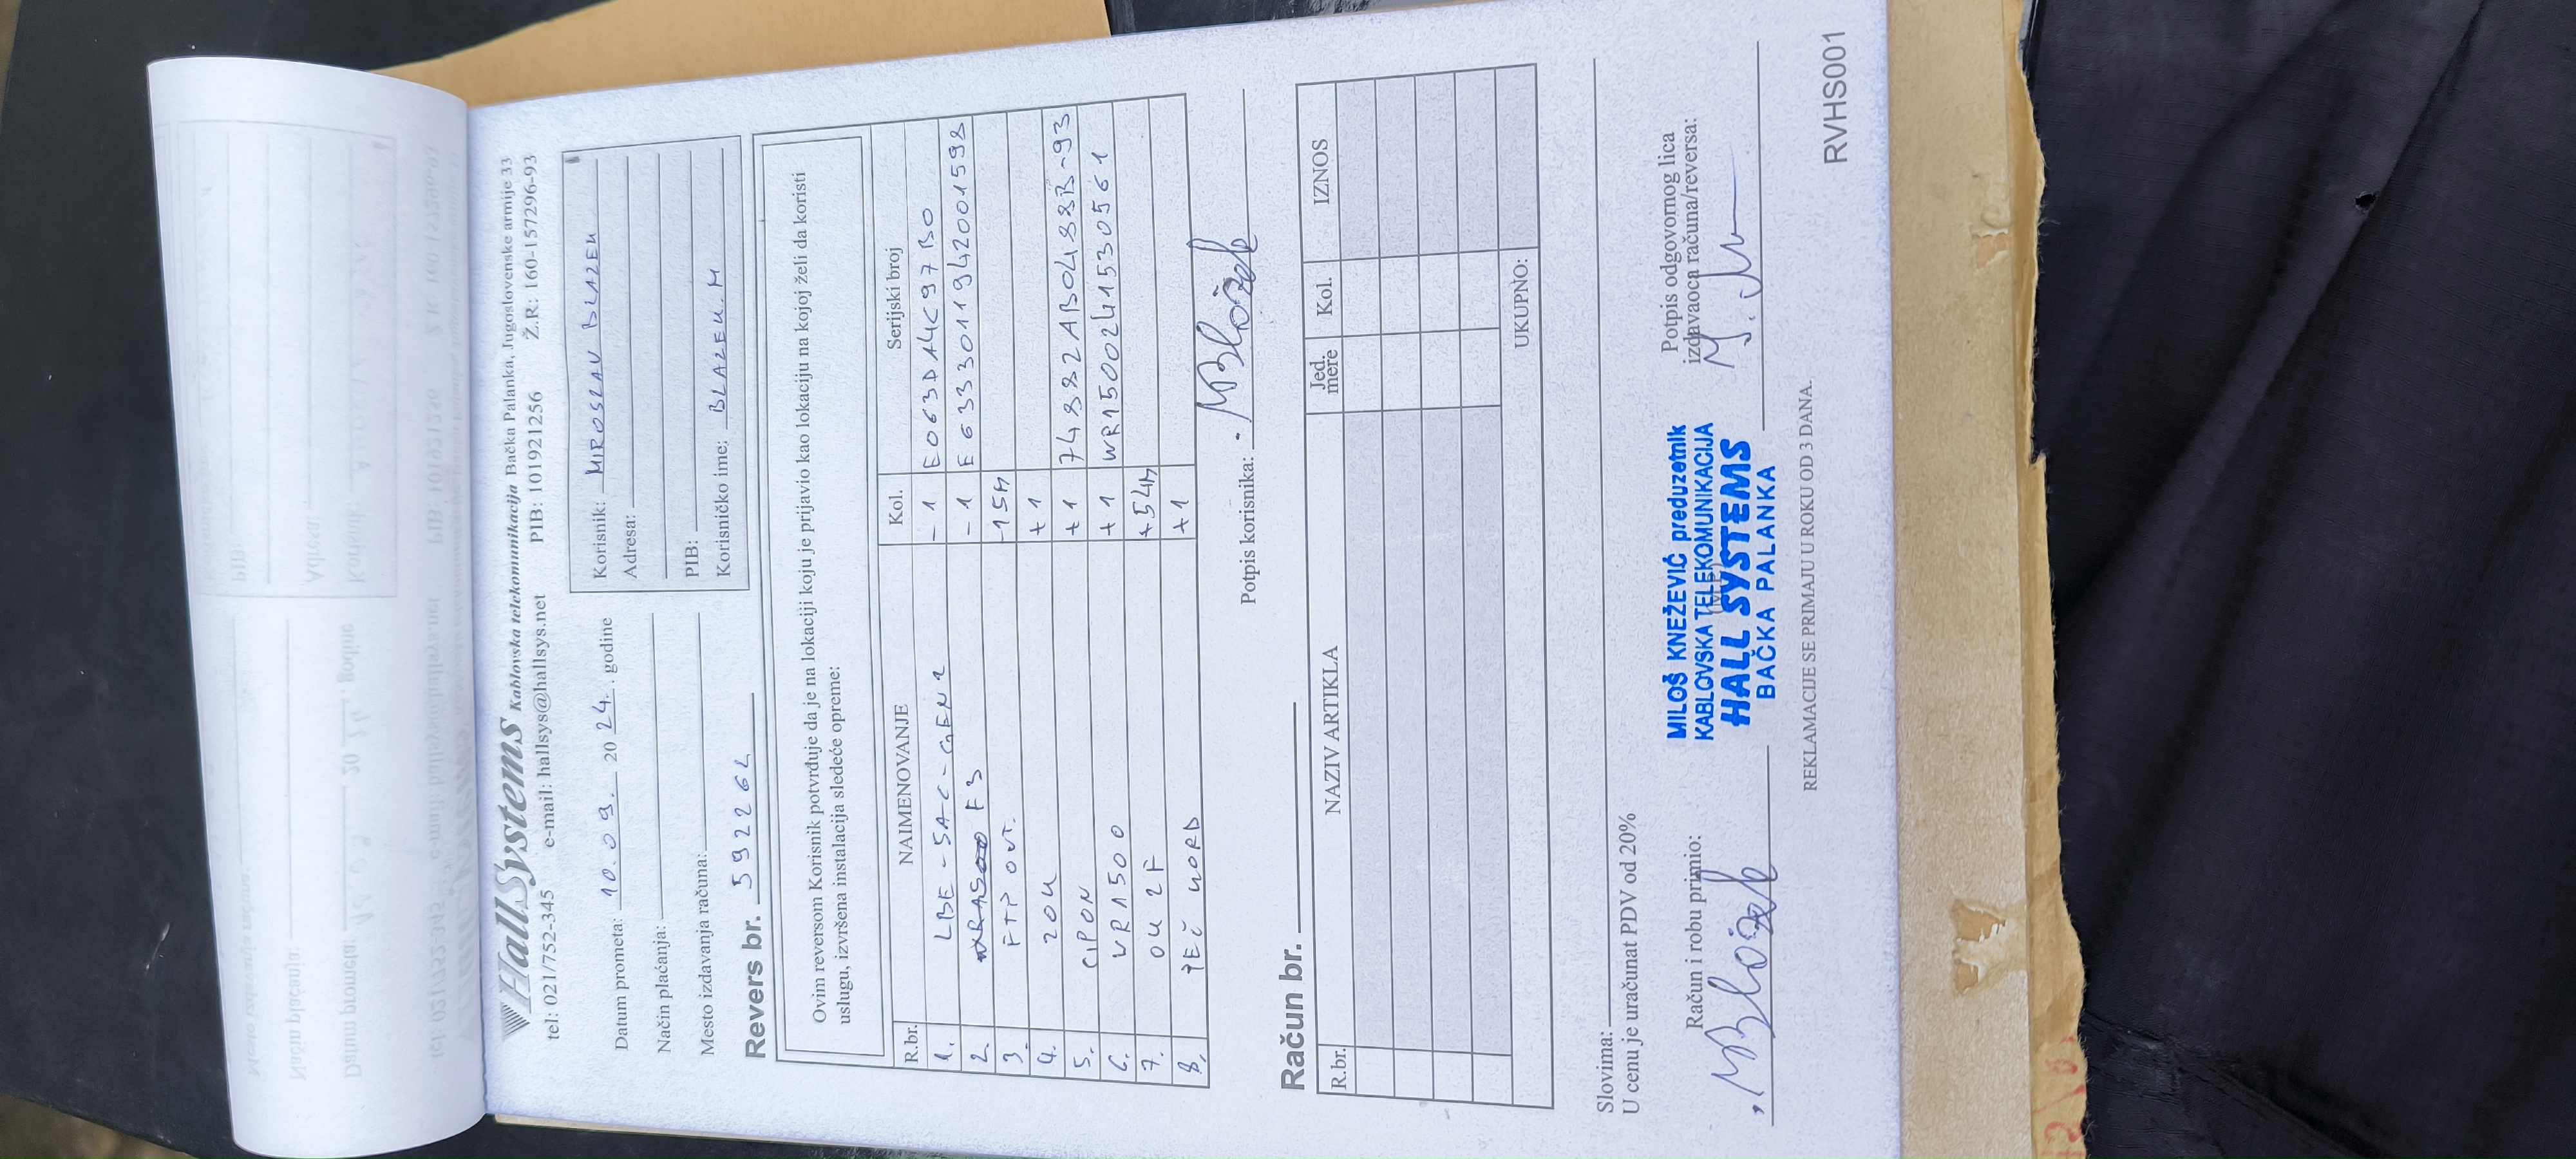 HallSystems Kablovska telekomunikacija Bačka Palanka, Jugoslovenske armije 33
tel: 021/752-345 e-mail: hallsys@hallsys.net PIB: 101921256 Ž.R: 160-157296-93
Datum prometa: 10.09. 2024. godine
Način plaćanja:
Mesto izdavanja računa:
Korisnik: MIROSLAV BLAZEK
Adresa:
PIB:
Korisničko ime: BLAZEK.M
Revers br. 592264
Ovim reversom Korisnik potvrđuje da je na lokaciji koju je prijavio kao lokaciju na kojoj želi da koristi
uslugu, izvršena instalacija sledeće opreme:
R.br. NAIMENOVANJE Kol. Serijski broj
1. LBE-5AC-GEN2 -1 E063DA4C97B0
2. F3 -1 E6333011942001598
3. FTP OUT. -15M
4. ZOK +1
5. GPON +1 74882AB0488B-93
6. WR1500 +1 WR1500241530561
7. OK 2F +54M
8. TEČ KORD +1
Potpis korisnika: MBlažek
Račun br.
R.br. NAZIV ARTIKLA Jed. mere Kol. IZNOS
UKUPNO:
Slovima:
U cenu je uračunat PDV od 20%
Račun i robu primio:
MBlažek
MILOŠ KNEŽEVIĆ preduzetnik
KABLOVSKA TELEKOMUNIKACIJA
HALL SYSTEMS
BAČKA PALANKA
Potpis odgovornog lica
izdavaoca računa/reversa:
REKLAMACIJE SE PRIMAJU U ROKU OD 3 DANA.
RVHS001